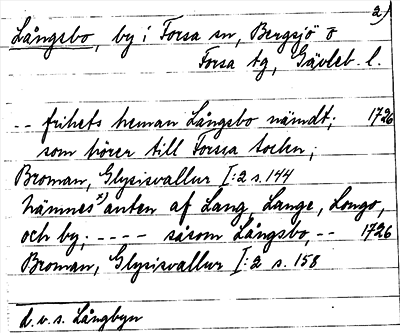 2)
Långsbo, by i Forsa sn, Bergsjö o
Forsa tg, Gävleb. l.
-- frihets heman Långsbo nämdt; 1726
som hörer till Forssa sochn;
Broman, Glysisvallur I:2 s. 144
hämnes²) anten af Lang, Lange, Longo,
och by, ---- såsom Långsbo, -- 1726
Broman, Glysisvallur I:2 s. 158
d.v.s. Långbyn